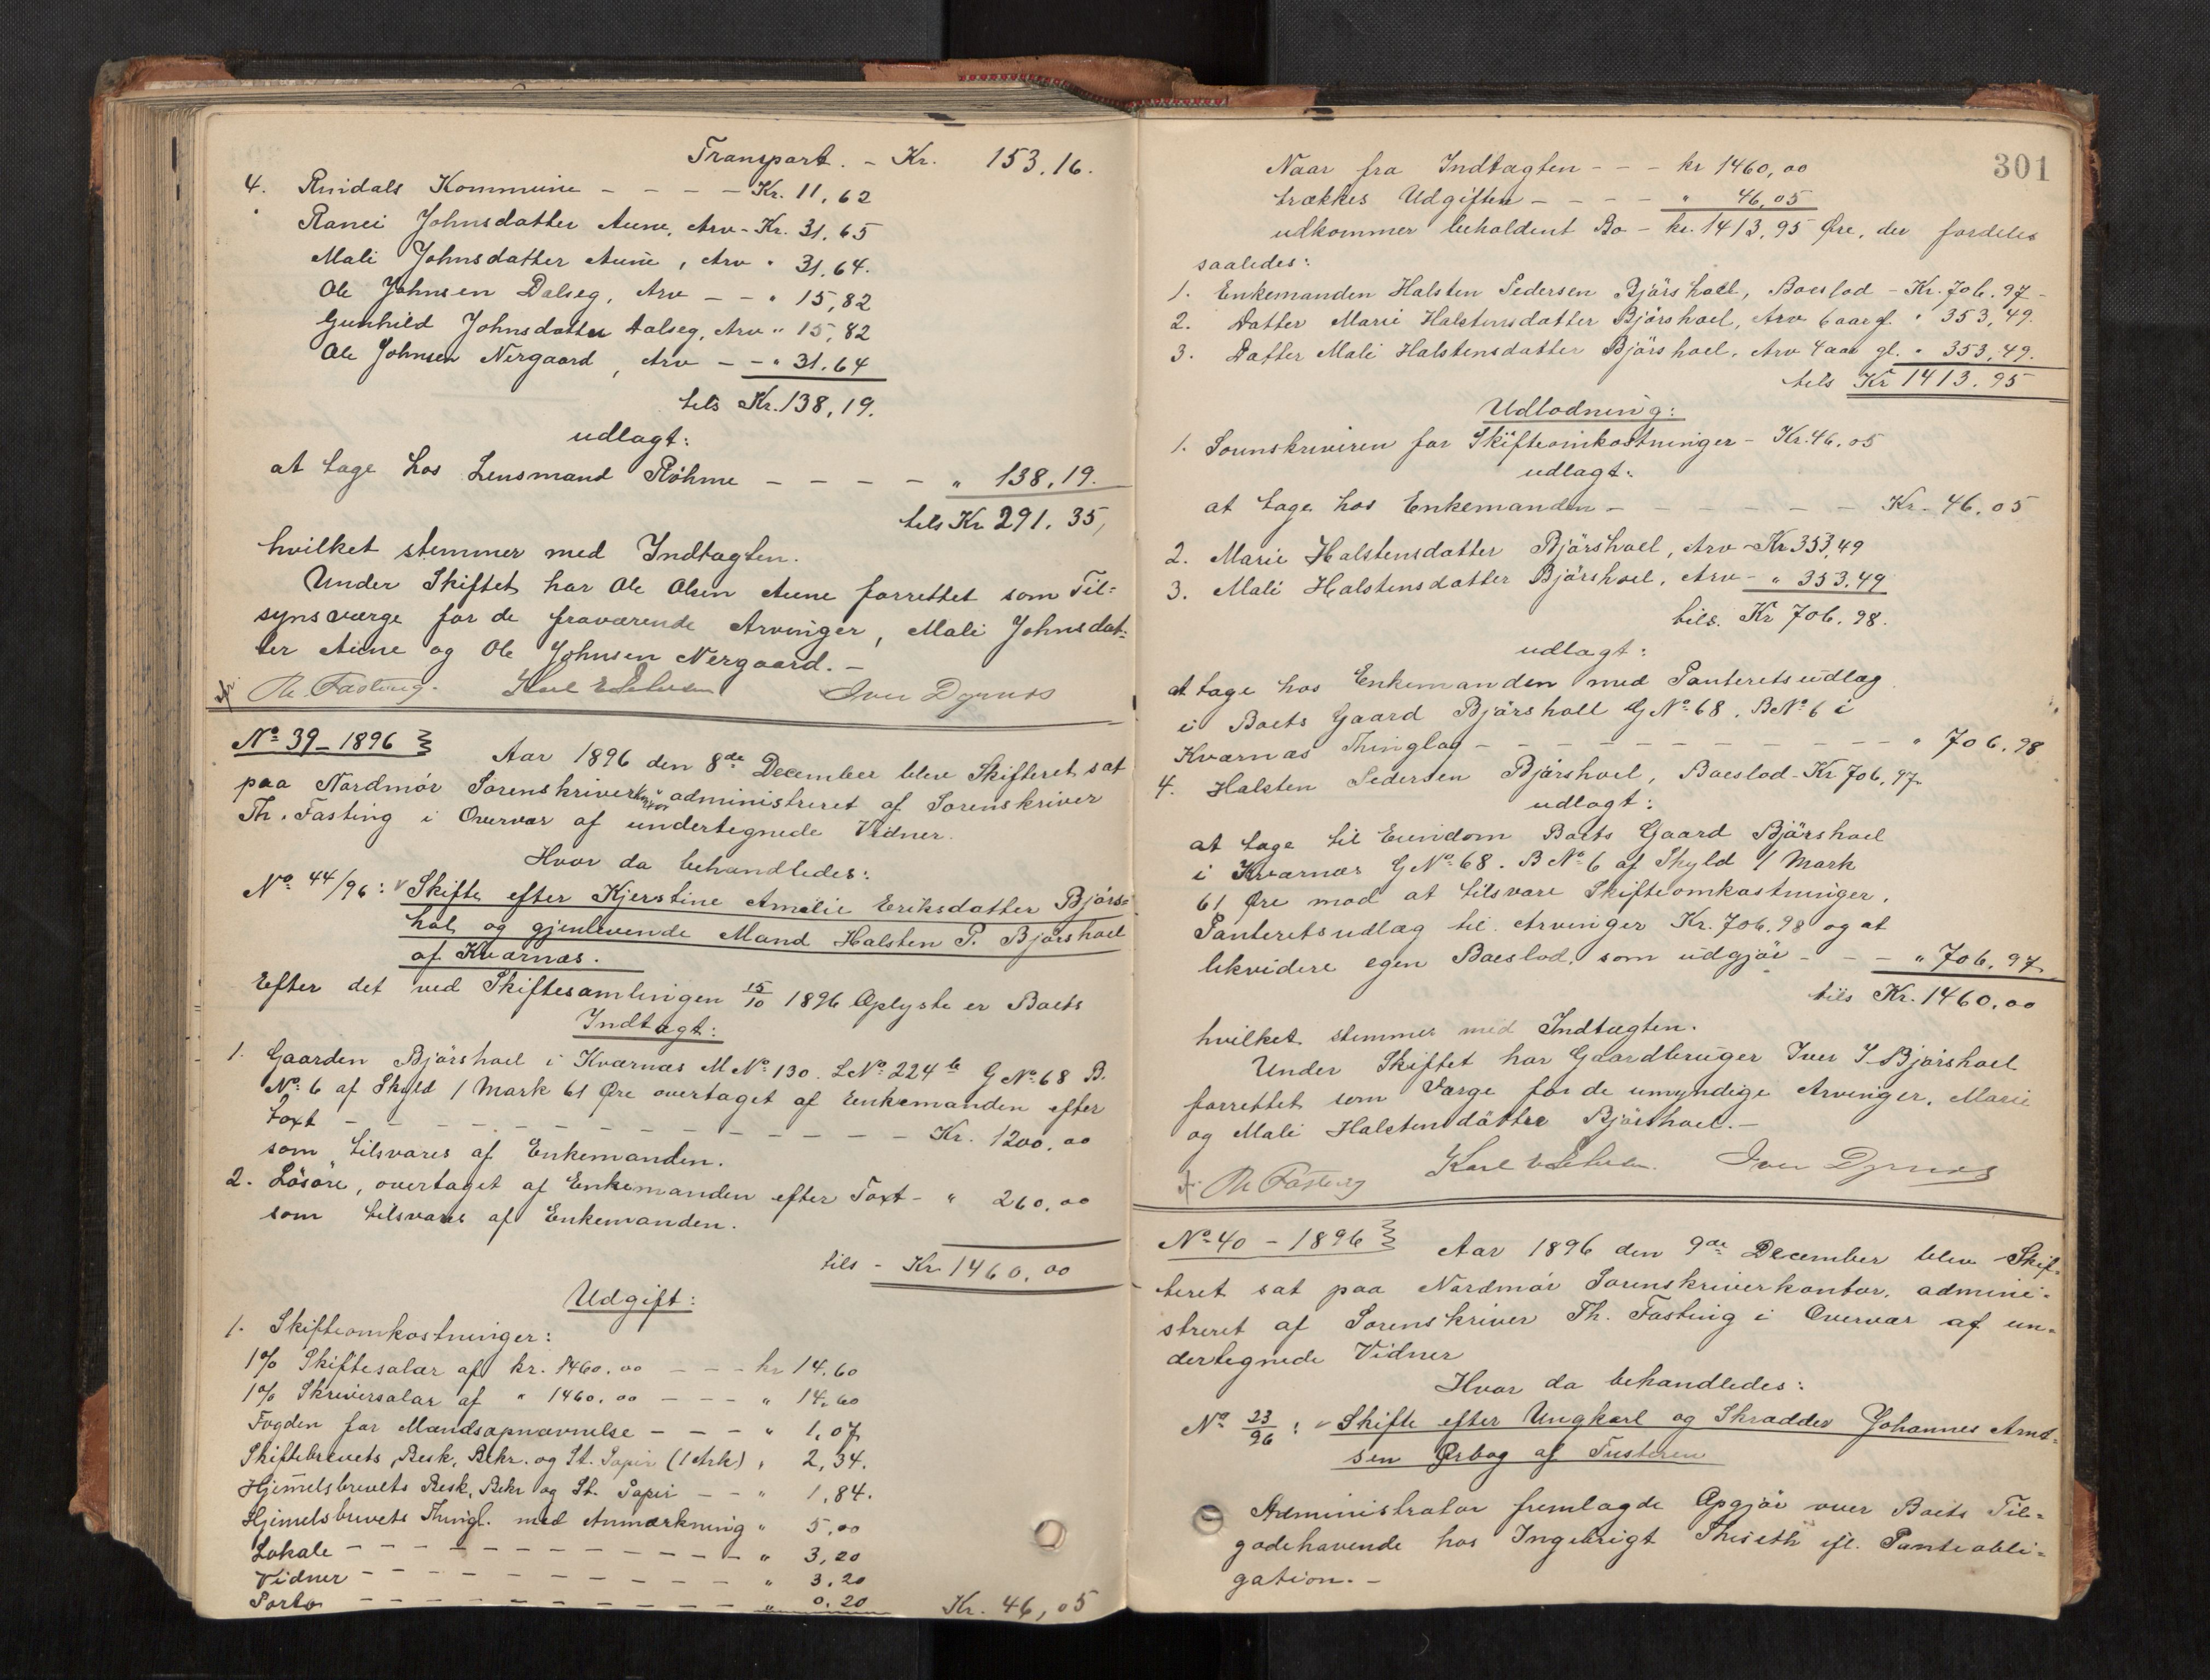 Transport. - Kr. 153.16.
4. Rindals Kommune - - - - Kr. 11,62
Ranei Johnsdatter Aune, Arv - Kr. 31.65
Mali Johnsdatter Aune, Arv " 31.64.
Ole Johnsen Dalseg, Arv - - " 15,82
Gunhild Johnsdatter Dalseg, Arv " 15,82
Ole Johnsen Nergaard, Arv - - " 31.64
tils Kr. 138,19.
udlagt:
at tage hos Lensmand Röhme - - - - " 138.19.
tils Kr 291.35,
hvilket stemmer med Indtægten.
Under Skiftet har Ole Olsen Aune forrettet som Til-
synsværge for de fraværende Arvinger, Mali Johnsdat-
ter Aune og Ole Johnsen Nergaard. -
Th. Fasting. Iver Dyrnes
No 39 - 1896
Aar 1896 den 8de December blev Skifteret sat
paa Nordmör Sorenskriverkontor administreret af Sorenskriver
Th. Fasting i Overvær af undertegnede Vidner.
Hvor da behandledes:
No 44/96: Skifte efter Kjerstine Amalie Eriksdatter Björs-
hol og gjenlevende Mand Halsten P. Björshoel
af Kværnæs.
Efter det ved Skiftesamlingen 15/10 1896 Oplyste er Boets
Indtægt:
1. Gaarden Björshoel i Kværnæs M No 130. L No 224 b G No 68 B.
No 6 af Skyld 1 Mark 61 Øre overtaget af Enkemanden efter
Taxt - - - - - - - - - - - - - Kr. 1200.00
som tilsvares af Enkemanden.
2. Lösöre, overtaget af Enkemanden efter Taxt - " 260.00
som tilsvares af Enkemanden.
tils - Kr 1460.00
Udgift:
1. Skifteomkostninger:
1% Skiftesalær af kr. 1460.00 - - - kr 14.60
1% Skriversalær af " 1460.00 - - - " 14.60
Fogden for Mandsopnævnelse - - - " 1,07
Skiftebrevets Besk. Bekr. og St. Papir (1 Ark) " 2,34.
Hjemmelsbrevets Besk. Bekr og St. Papir - - " 1,84.
Hjemmelsbrevets Thingl. med Anmærkning " 5.00
Lokale - - - - - - - - - - - " 3,20
Vidner - - - - - - - - - - - " 3.20
Porto - - - - - - - - - - - " 0.20 Kr. 46,05
301
Naar fra Indtægten - - - kr 1460,00
trækkes Udgiften - - - - " 46.05
udkommer beholdent Bo - kr. 1413,95 Øre, der fordeles
saaledes:
1. Enkemanden Halsten Pedersen Björshoel, Boeslod - Kr. 706.97 -
2. Datter Marie Halstensdatter Bjørshoel, Arv 6 aar g. " 353,49.
3. Datter Mali Halstensdatter Bjørshoel, Arv 4 aar gl. " 353,49.
tils Kr 1413.95
Udlodning:
1. Sorenskriveren for Skifteomkostninger - Kr. 46.05
udlagt:
at tage hos Enkemanden - - - - - - Kr - 46.05
2. Marie Halstensdatter Bjørshoel, Arv - Kr 353,49
3. Mali Halstensdatter Bjørshoel, Arv - " 353.49
tils. Kr 706.98.
udlagt:
at tage hos Enkemanden med Panteretsudlæg
i Boets Gaard Bjørshoel G No 68. B No 6 i
Kværnæs Thinglag - - - - - - - - - " 706.98
4. Halsten Pedersen Bjørshoel, Boeslod - Kr 706,97
udlagt:
at tage til Eiendom Boets Gaard Bjørshoel
i Kværnæs G No 68. B No 6 af Skyld 1 Mark
61 Øre mod at tilsvare Skifteomkostninger,
Panteretsudlæg til Arvinger Kr. 706.98 og at
likvidere egen Boeslod, som udgjör - - - " 706.97
tils Kr. 1460.00
hvilket stemmer med Indtægten.
Under Skiftet har Gaardbruger Iver I. Bjørshoel
forrettet som Værge for de umyndige Arvinger, Marie
og Mali Halstensdøttre Bjørshoel. -
Th. Fasting Iver Dyrnes
No 40 - 1896
Aar 1896 den 9de December blev Skif-
teret sat paa Nordmör Sorenskriverkontor, admini-
streret af Sorenskriver Th. Fasting i Overvær af un-
dertegnede Vidner
Hvor da behandledes:
No 23/96: Skifte efter Ungkarl og Skrædder Johannes Arnt-
sen Ørbog af Tusteren
Administrator fremlagde Opgjör over Boets Til-
godehavende hos Ingebrigt ifl. Panteobli-
gation. -